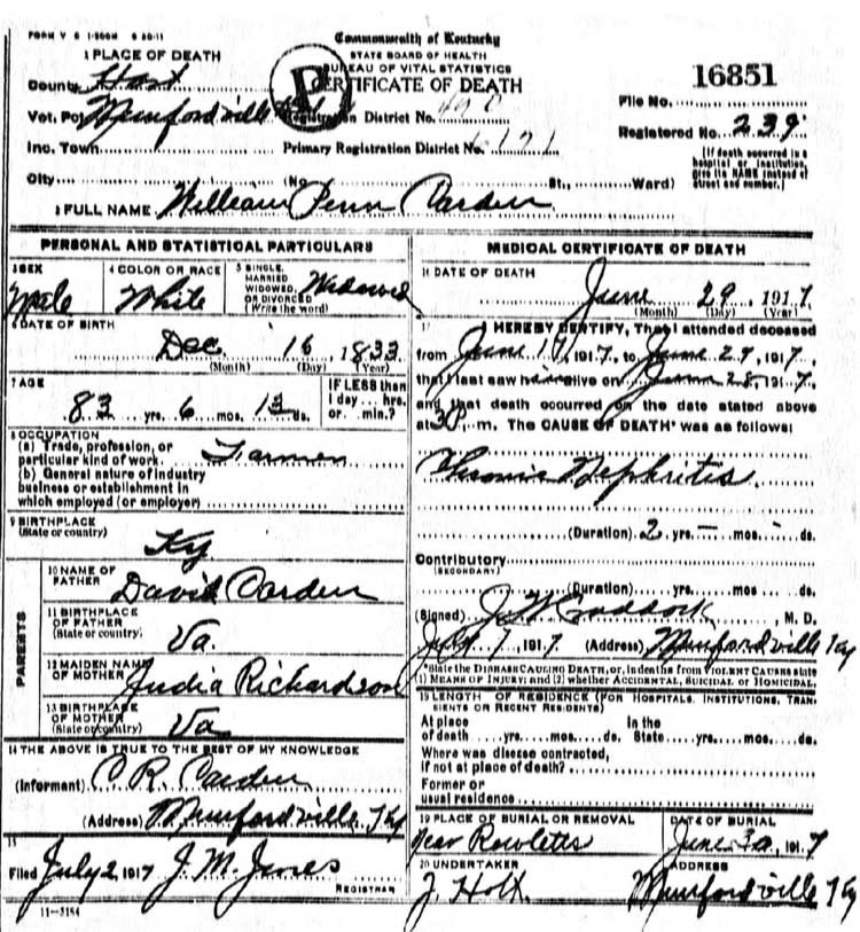 FORM V S 1-500M 8 20-11
Commonwealth of Kentucky
STATE BOARD OF HEALTH
BUREAU OF VITAL STATISTICS
CERTIFICATE OF DEATH
1 PLACE OF DEATH
County Hart
Vot. Pct Munfordville Registration District No. 490
Inc. Town Primary Registration District No.
City (No. St., Ward)
16851
File No.
Registered No. 239
[If death occurred in a
hospital or institution,
give its NAME instead of
street and number.]
2 FULL NAME William Penn Carden
PERSONAL AND STATISTICAL PARTICULARS
3 SEX
Male
4 COLOR OR RACE
White
5 SINGLE,
MARRIED
WIDOWED,
OR DIVORCED
(Write the word)
Widowed
6 DATE OF BIRTH
Dec 16, 1833
(Month) (Day) (Year)
7 AGE
83 yrs. 6 mos. 13 ds.
IF LESS than
1 day ... hrs.
or ... min.?
8 OCCUPATION
(a) Trade, profession, or
particular kind of work. Farmer
(b) General nature of industry
business or establishment in
which employed (or employer)
9 BIRTHPLACE
(State or country)
Ky
PARENTS
10 NAME OF
FATHER
David Carden
11 BIRTHPLACE
OF FATHER
(State or country)
Va.
12 MAIDEN NAME
OF MOTHER
Judia Richardson
13 BIRTHPLACE
OF MOTHER
(State or country)
Va
14 THE ABOVE IS TRUE TO THE BEST OF MY KNOWLEDGE
(Informant) C. R. Carden
(Address) Munfordville Ky
15
Filed July 2, 1917 J. M. Jones
REGISTRAR
11-3184
MEDICAL CERTIFICATE OF DEATH
16 DATE OF DEATH
June 29, 1917
(Month) (Day) (Year)
17 I HEREBY CERTIFY, That I attended deceased
from June 1, 1917, to June 29, 1917
that I last saw him alive on June 28, 1917,
and that death occurred on the date stated above
at m. The CAUSE OF DEATH* was as follows:
Chronic Nephritis
(Duration) 2 yrs. — mos. - ds.
Contributory
(SECONDARY)
(Duration) yrs. mos. ds.
(Signed) J W Craddock, M. D.
July 7, 1917 (Address) Munfordville Ky
*State the DISEASE CAUSING DEATH, or, in deaths from VIOLENT CAUSES state
(1) MEANS OF INJURY; and (2) whether ACCIDENTAL, SUICIDAL or HOMICIDAL.
18 LENGTH OF RESIDENCE (FOR HOSPITALS, INSTITUTIONS, TRAN-
SIENTS OR RECENT RESIDENTS)
At place In the
of death yrs. mos. ds. State yrs. mos. ds.
Where was disease contracted,
if not at place of death?
Former or
usual residence
19 PLACE OF BURIAL OR REMOVAL
near Rowletts
DATE OF BURIAL
June 30, 1917
20 UNDERTAKER
J. Holt
ADDRESS
Munfordville Ky